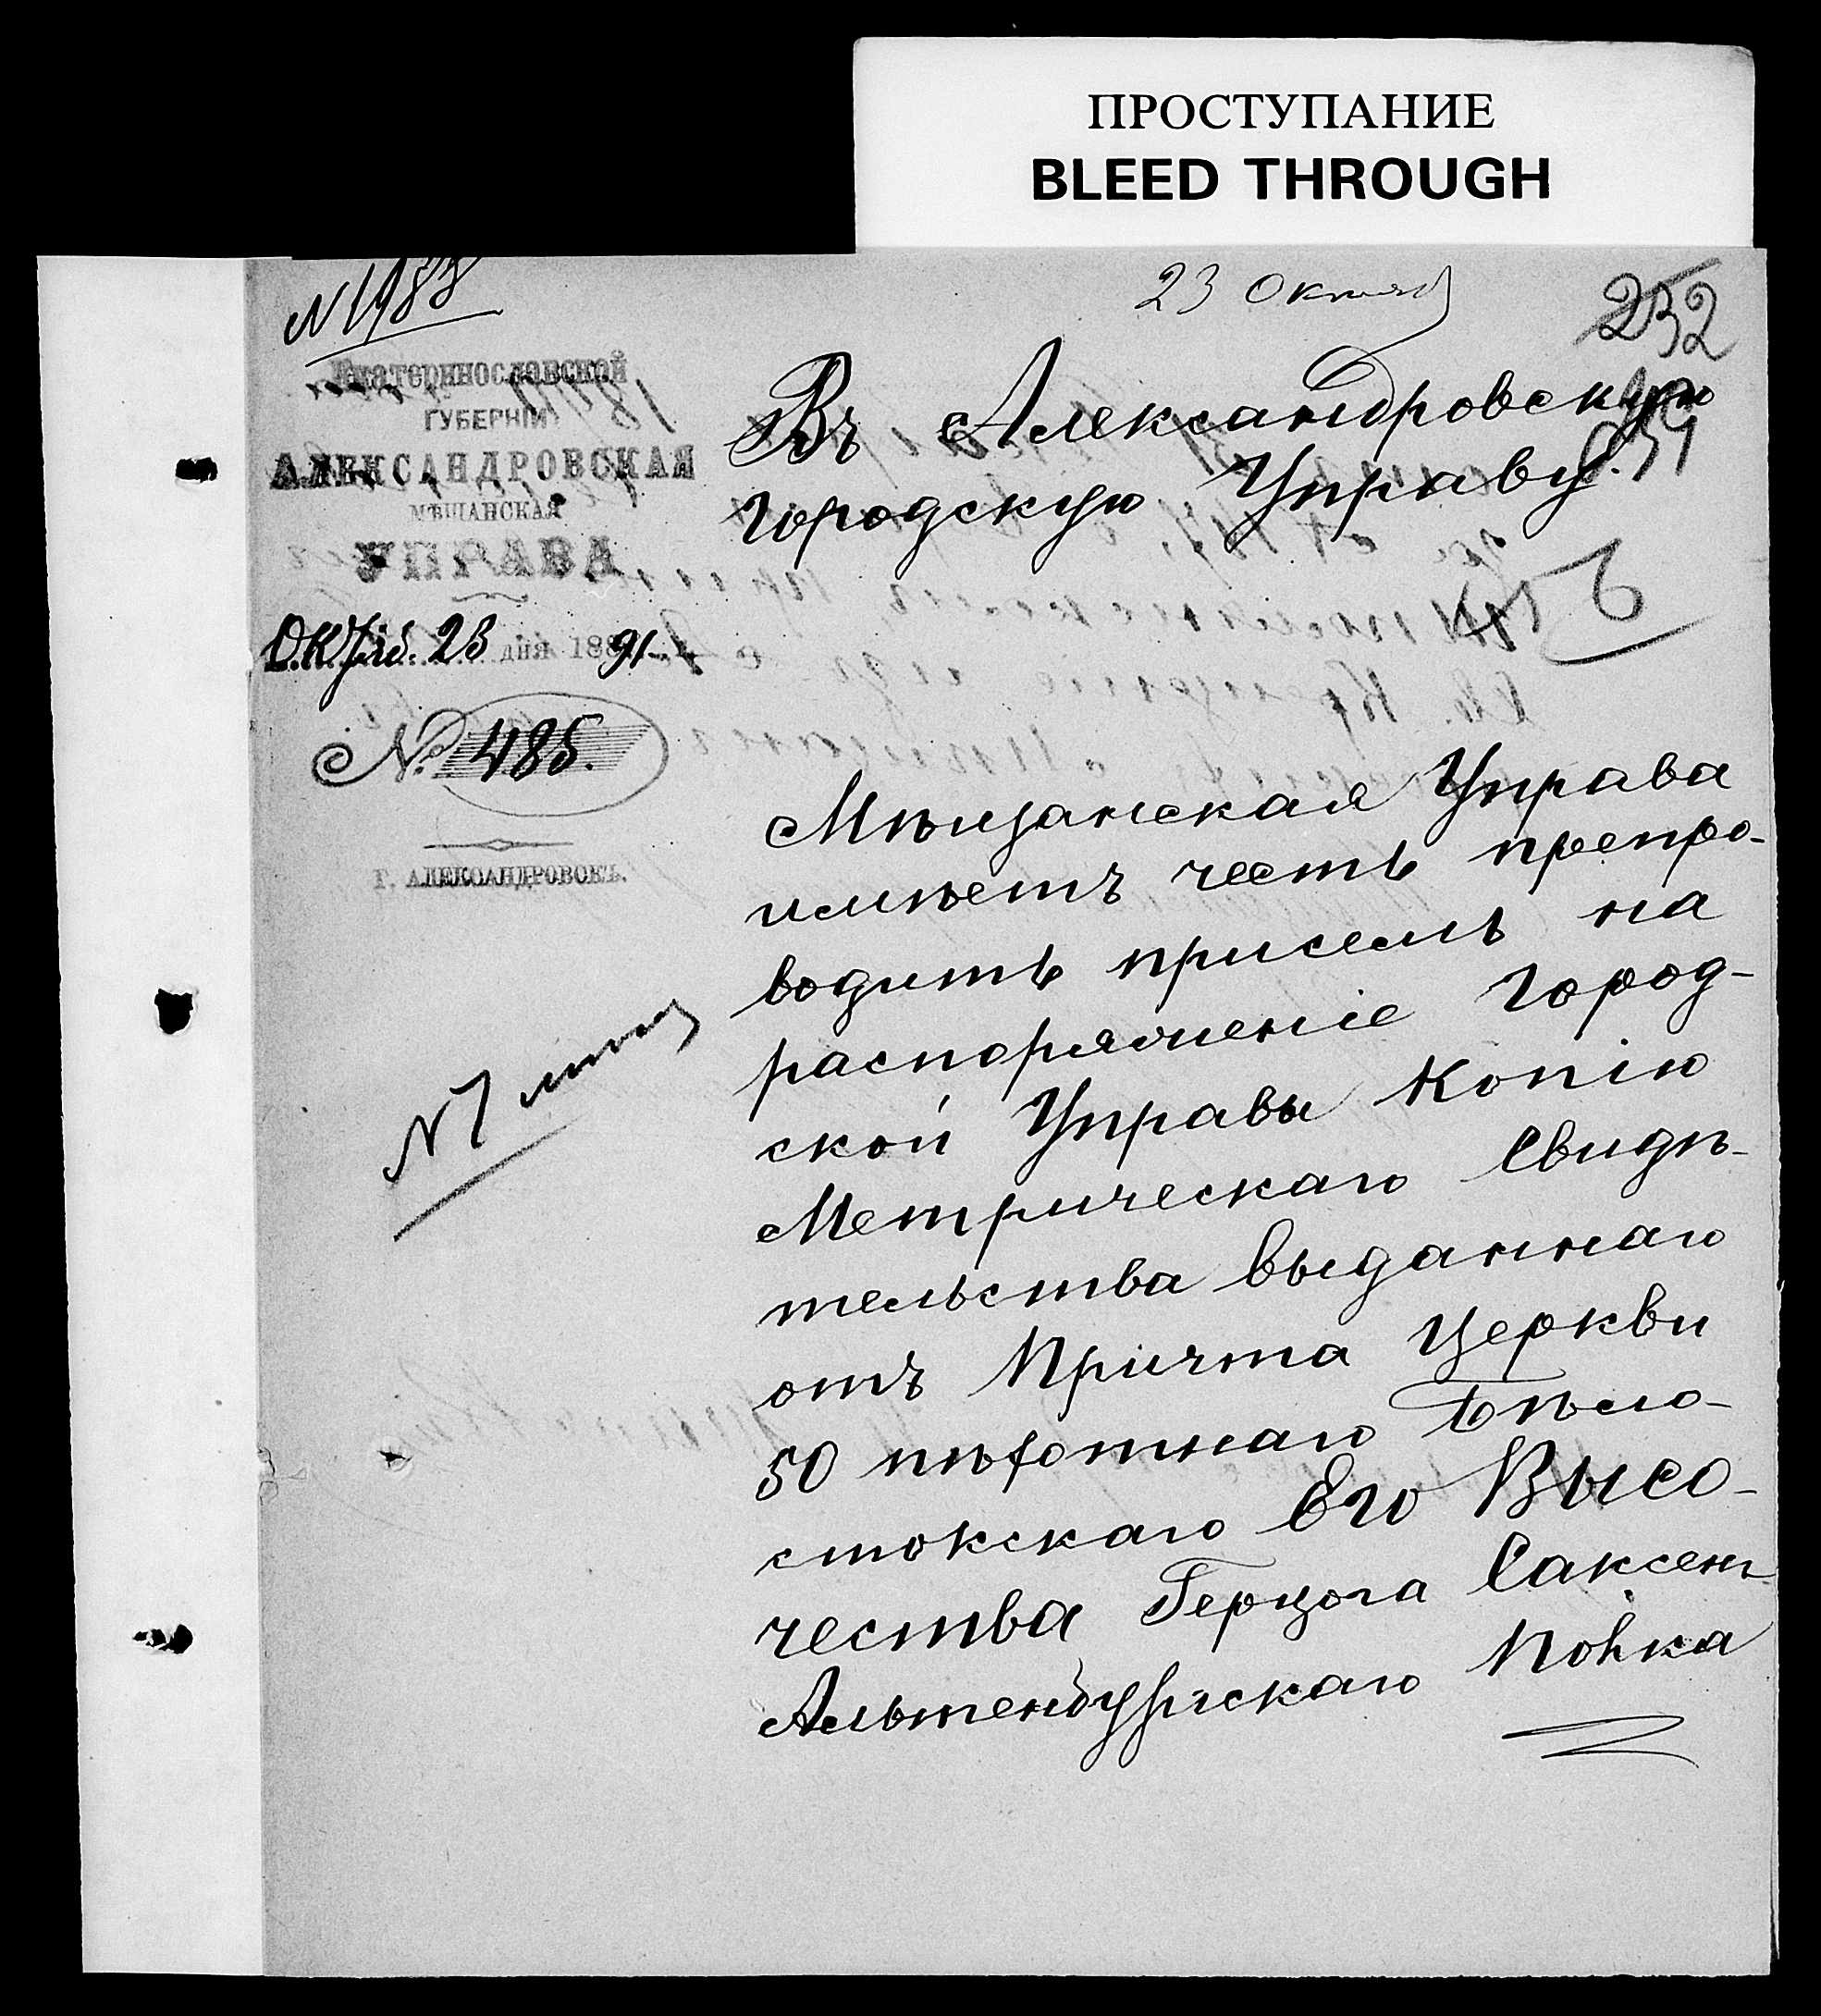 ПРОСТУПАНИЕ
BLEED THROUGH
N 1983
23 Октяб
252
Екатеринославской
ГУБЕРНІИ
АЛЕКСАНДРОВСКАЯ
МѢЩАНСКАЯ
УПРАВА
Октяб. 23 дня 1891
№ 485.
Г. АЛЕКСАНДРОВСКЪ.
Въ Александровскую
Городскую Управу.
Мѣщанская Управа
имѣетъ честь препро-
водить присемъ на
распоряженіе Город-
ской Управы Копію
Метрическаго Свидѣ-
тельства выданнаго
отъ Причта Церкви
50 пѣхотнаго Бѣло-
стокскаго Его Высо-
чества Герцога Саксен-
Альтенбургскаго Полка